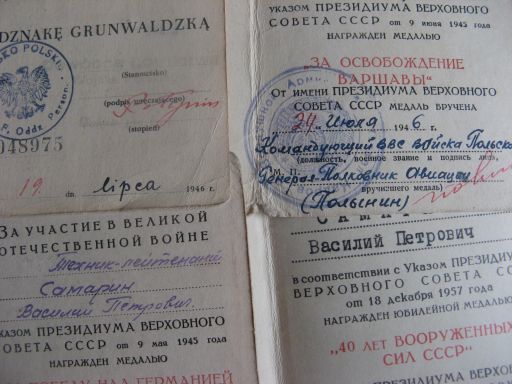 DZNAKĘ GRUNWALDZKĄ
KO POLSK
(Stanowisko)
(podpis wręczającego)
(stopień)
F. Oddz. Person.
048975
19 dn. lipca 1946 r.
указом ПРЕЗИДИУМА ВЕРХОВНОГО
СОВЕТА СССР от 9 июня 1945 года
НАГРАЖДЕН МЕДАЛЬЮ
"ЗА ОСВОБОЖДЕНИЕ
ВАРШАВЫ"
От имени ПРЕЗИДИУМА ВЕРХОВНОГО
СОВЕТА СССР МЕДАЛЬ ВРУЧЕНА
24 „ июля 1946 г.
Командующий ВВС Войска Польско
(должность, воинское звание и подпись лица,
М. П.
Генерал-Полковник Авиации
вручившего медаль)
(Полынин)
ЗА УЧАСТИЕ В ВЕЛИКОЙ
ОТЕЧЕСТВЕННОЙ ВОЙНЕ
Техник-лейтенант
Самарин
Василий Петрович
указом ПРЕЗИДИУМА ВЕРХОВНОГО
СОВЕТА СССР от 9 мая 1945 года
НАГРАЖДЕН МЕДАЛЬЮ
ПОБЕДУ НАД ГЕРМАНИЕЙ
САМАРИ
Василий Петрович
в соответствии с Указом ПРЕЗИДИ
ВЕРХОВНОГО СОВЕТА СС
от 18 декабря 1957 года
НАГРАЖДЕН ЮБИЛЕЙНОЙ МЕДАЛЬЮ
"40 ЛЕТ ВООРУЖЕННЫХ
СИЛ СССР"